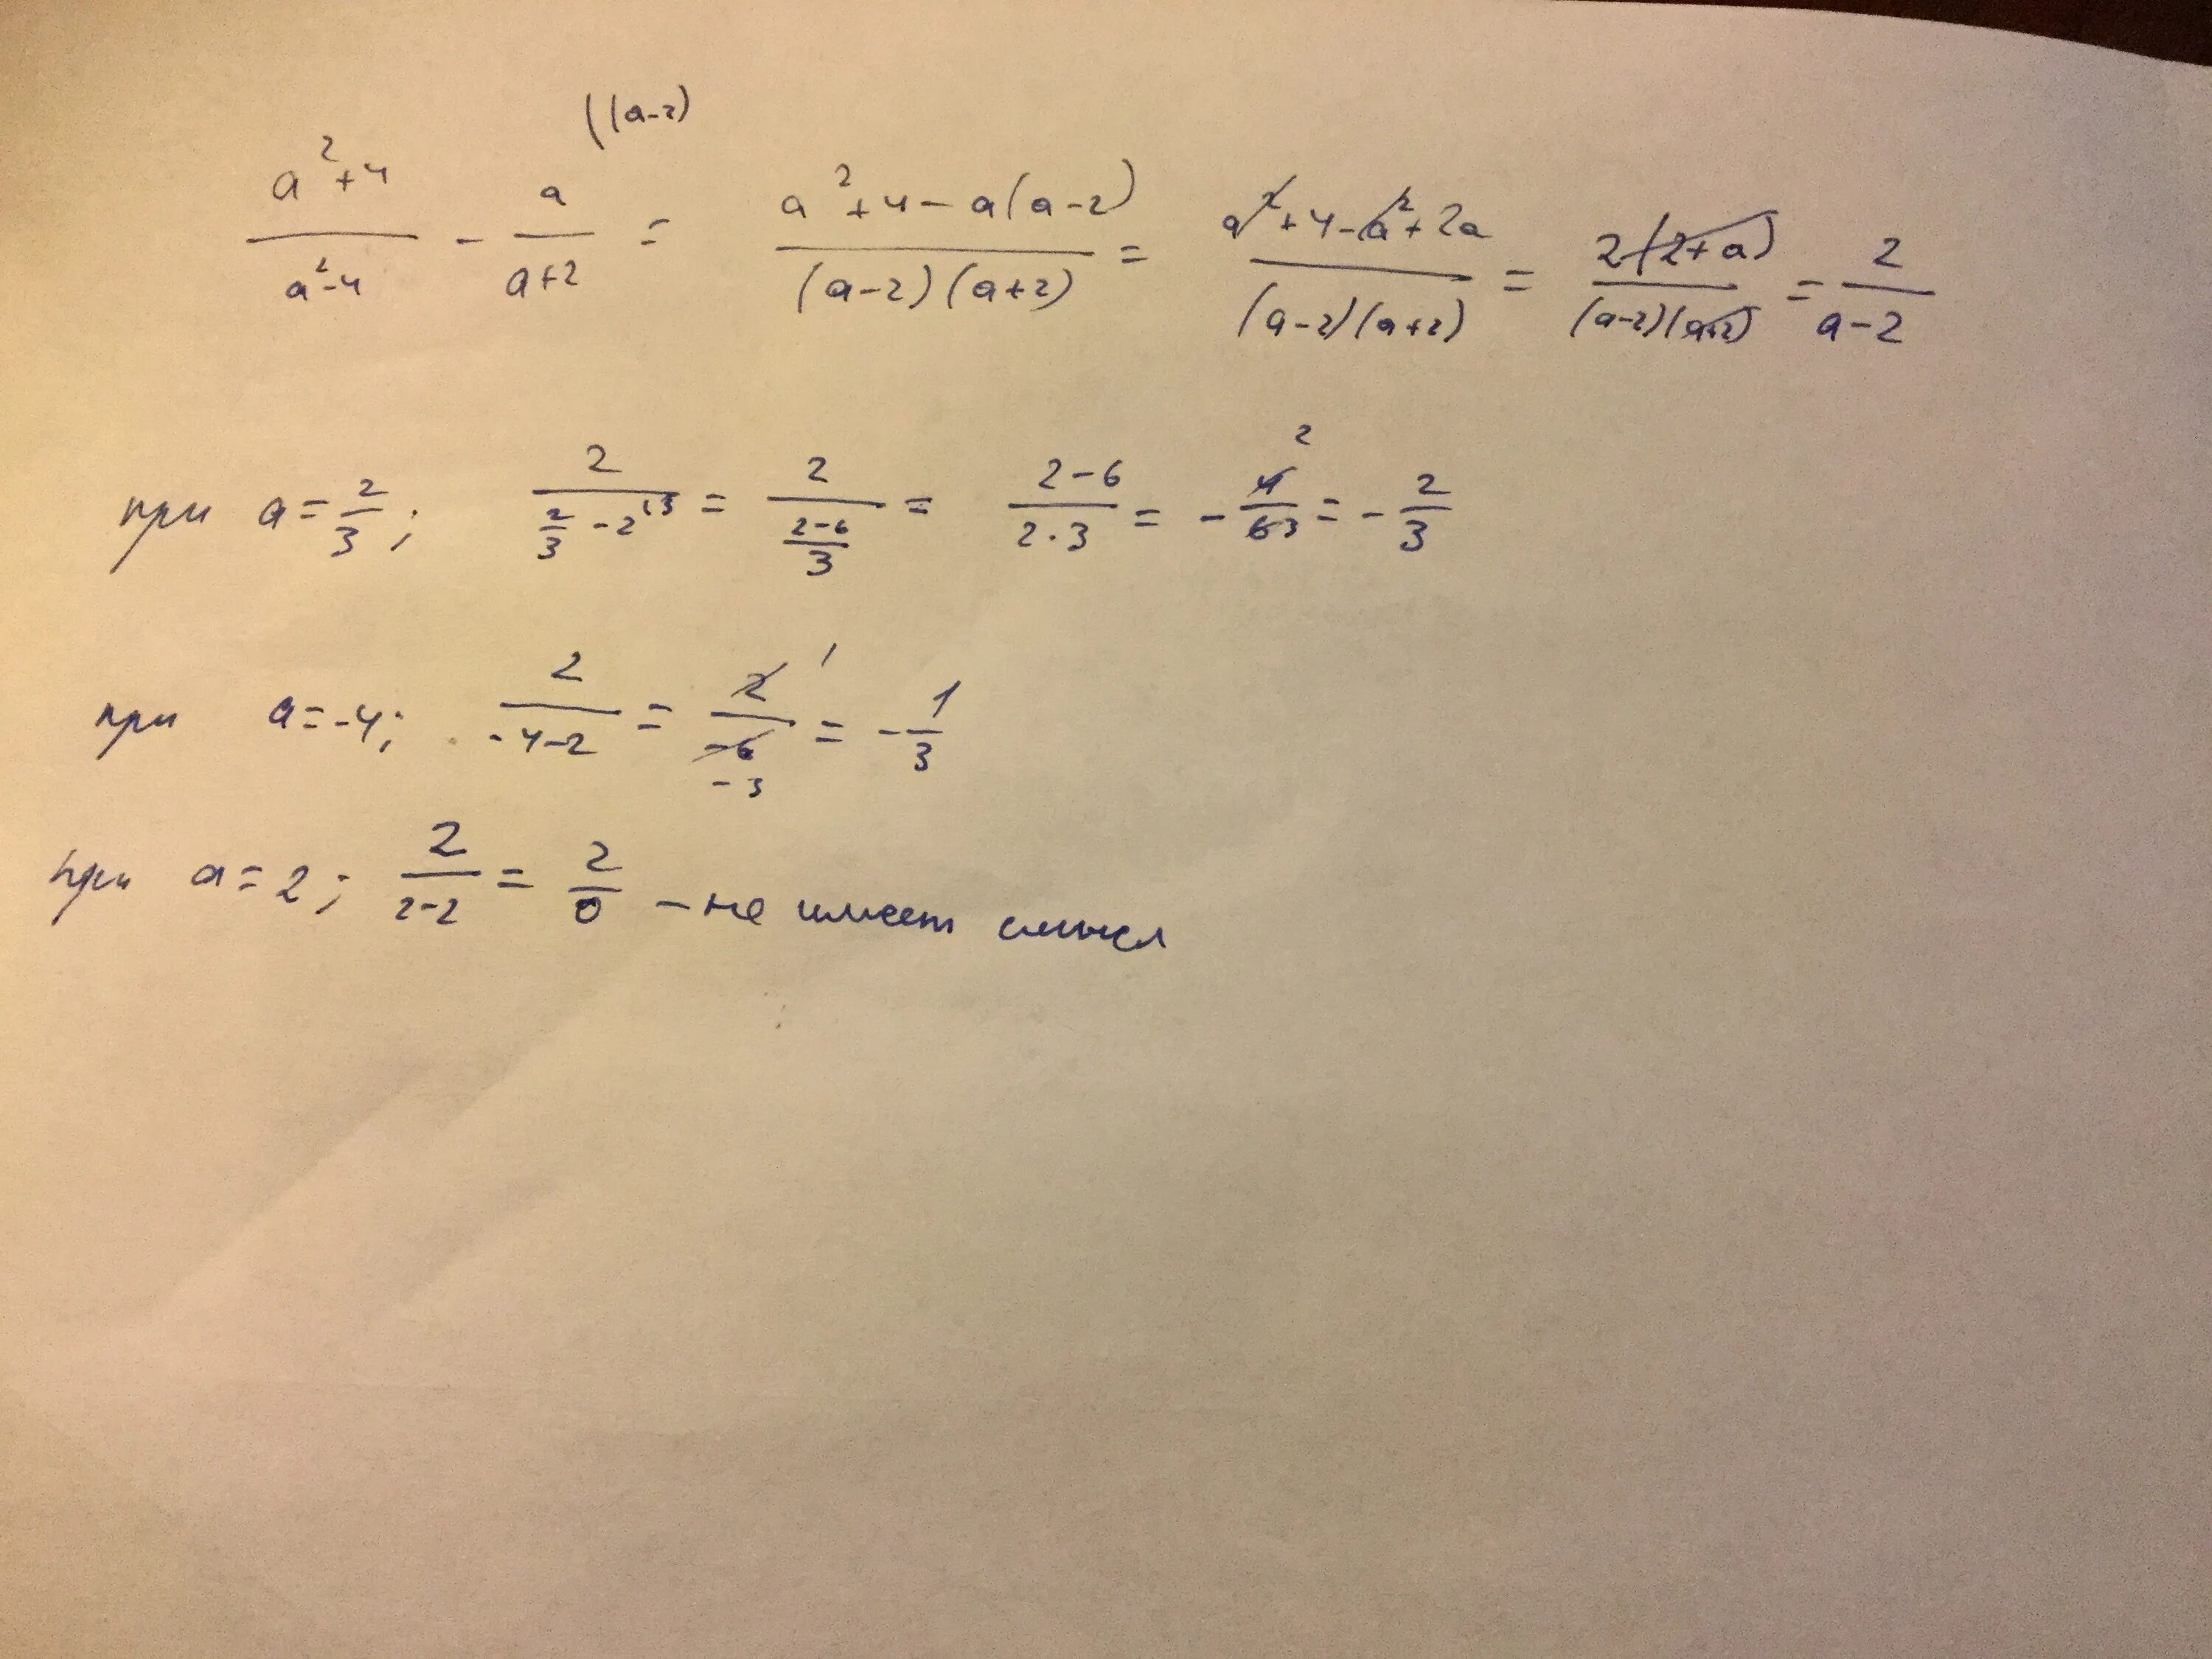 ((a-2)
a²+4/a²-4 - a/a+2 = a²+4-a(a-2)/(a-2)(a+2) = a²+4-a²+2a/(a-2)(a+2) = 2(2+a)/(a-2)(a+2) = 2/a-2
при a=2/3; 2/(2/3 -2⁽³) = 2/((2-6)/3) = 2-6/2·3 = -4 2/6 3 = -2/3
при a=-4; 2/-4-2 = 2 1/-6 -3 = -1/3
при a=2; 2/2-2 = 2/0 - не имеет смысл